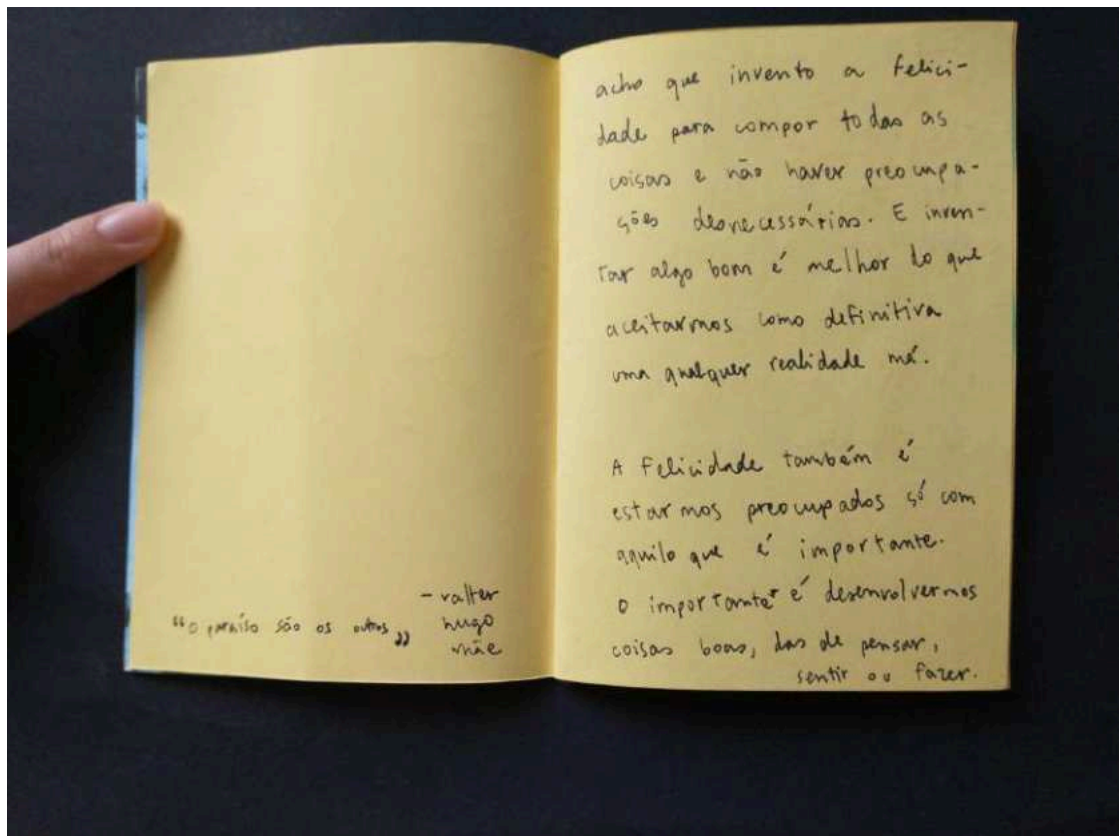 "o paraíso são os outros"
- valter
hugo
mãe
acho que invento a felici-
dade para compor todas as
coisas e não haver preocupa-
ções desnecessárias. E inven-
tar algo bom é melhor do que
aceitarmos como definitiva
uma qualquer realidade má.
A Felicidade também é
estarmos preocupados só com
aquilo que é importante.
O importante é desenvolvermos
coisas boas, das de pensar,
sentir ou fazer.